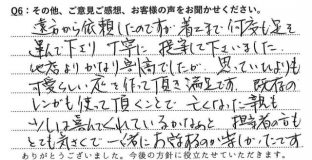 Q6:その他、ご意見ご感想、お客様の声をお聞かせください。
遠方から依頼したのですが 着工まで何度も足を
運んで下さり 丁寧に 提案して下いました。
他店よりかなり割高でしたが、思っていたよりも
可愛らしい 庭を作って頂き満足です。既存の
レンガも使って頂くことで 亡くなった親も
少しは喜んでくれているかなぁと 担当者の方も
とても気さくで 一緒に お話するのが楽しかったです
ありがとうございました。今後の方針に役立たせていただきます。